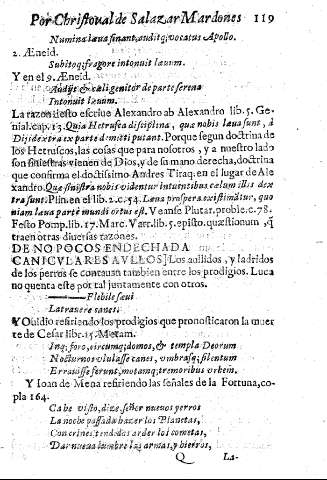 Por Christoual de Salazar Mardones 119
Numina læua sinant, auditq; vocatus Apollo.
2. Æneid.
Subitoq; fragore intonuit læuum.
Y en el 9. Æneid.
Audijt & cæli genitor de parte serena
Intonuit læuum.
La razon desto escriue Alexandro ab Alexandro lib. 5. Ge-
nial. cap. 13. Quia Hetrusca disciplina, quæ nobis læua sunt, à
Dijs dextra ex parte demitti putant. Porque segun doctrina de
los Hetruscos, las cosas que para nosotros, y a nuestro lado
son siniestras vienen de Dios, y de su mano derecha, doctrina
que confirma el doctissimo Andres Tiraq. en el lugar de Ale
xandro. Quæ sinistra nobis videntur intuentibus cælum illis dex
tra sunt. Plin. en el lib. 2. c. 54. Læua prospera existimatur, quo
niam læua parte mundi ortus est. Veanse Plutar. proble. c. 78.
Festo Pomp. lib. 17. Marc. Varr. lib. 5. episto. quæstionum, q̃
traen otras diuersas razones.
DE NO POCOS ENDECHADA
CANICVLARES AVLLOS] Los aullidos, y ladridos
de los perros se contauan tambien entre los prodigios. Luca
no quenta este por tal juntamente con otros.
Flebile sæui
Latrauere canes.
Y Ouidio refiriendo los prodigios que pronosticaron la muer
te de Cesar libr. 15. Metam.
Inq; foro, circumq; domos, & templa Deorum
Nocturnos vlulasse canes, vmbrasq; silentum
Errauisse ferunt, motamq; tremoribus vrbem.
Y Ioan de Mena refiriendo las señales de la Fortuna, co-
pla 164.
Ca he visto, dize, señor nueuos yerros
La noche passada hazer los Planetas,
Con crines tendidos arder los cometas,
Dar nueua lumbre las armas, y hierros,
Q La-